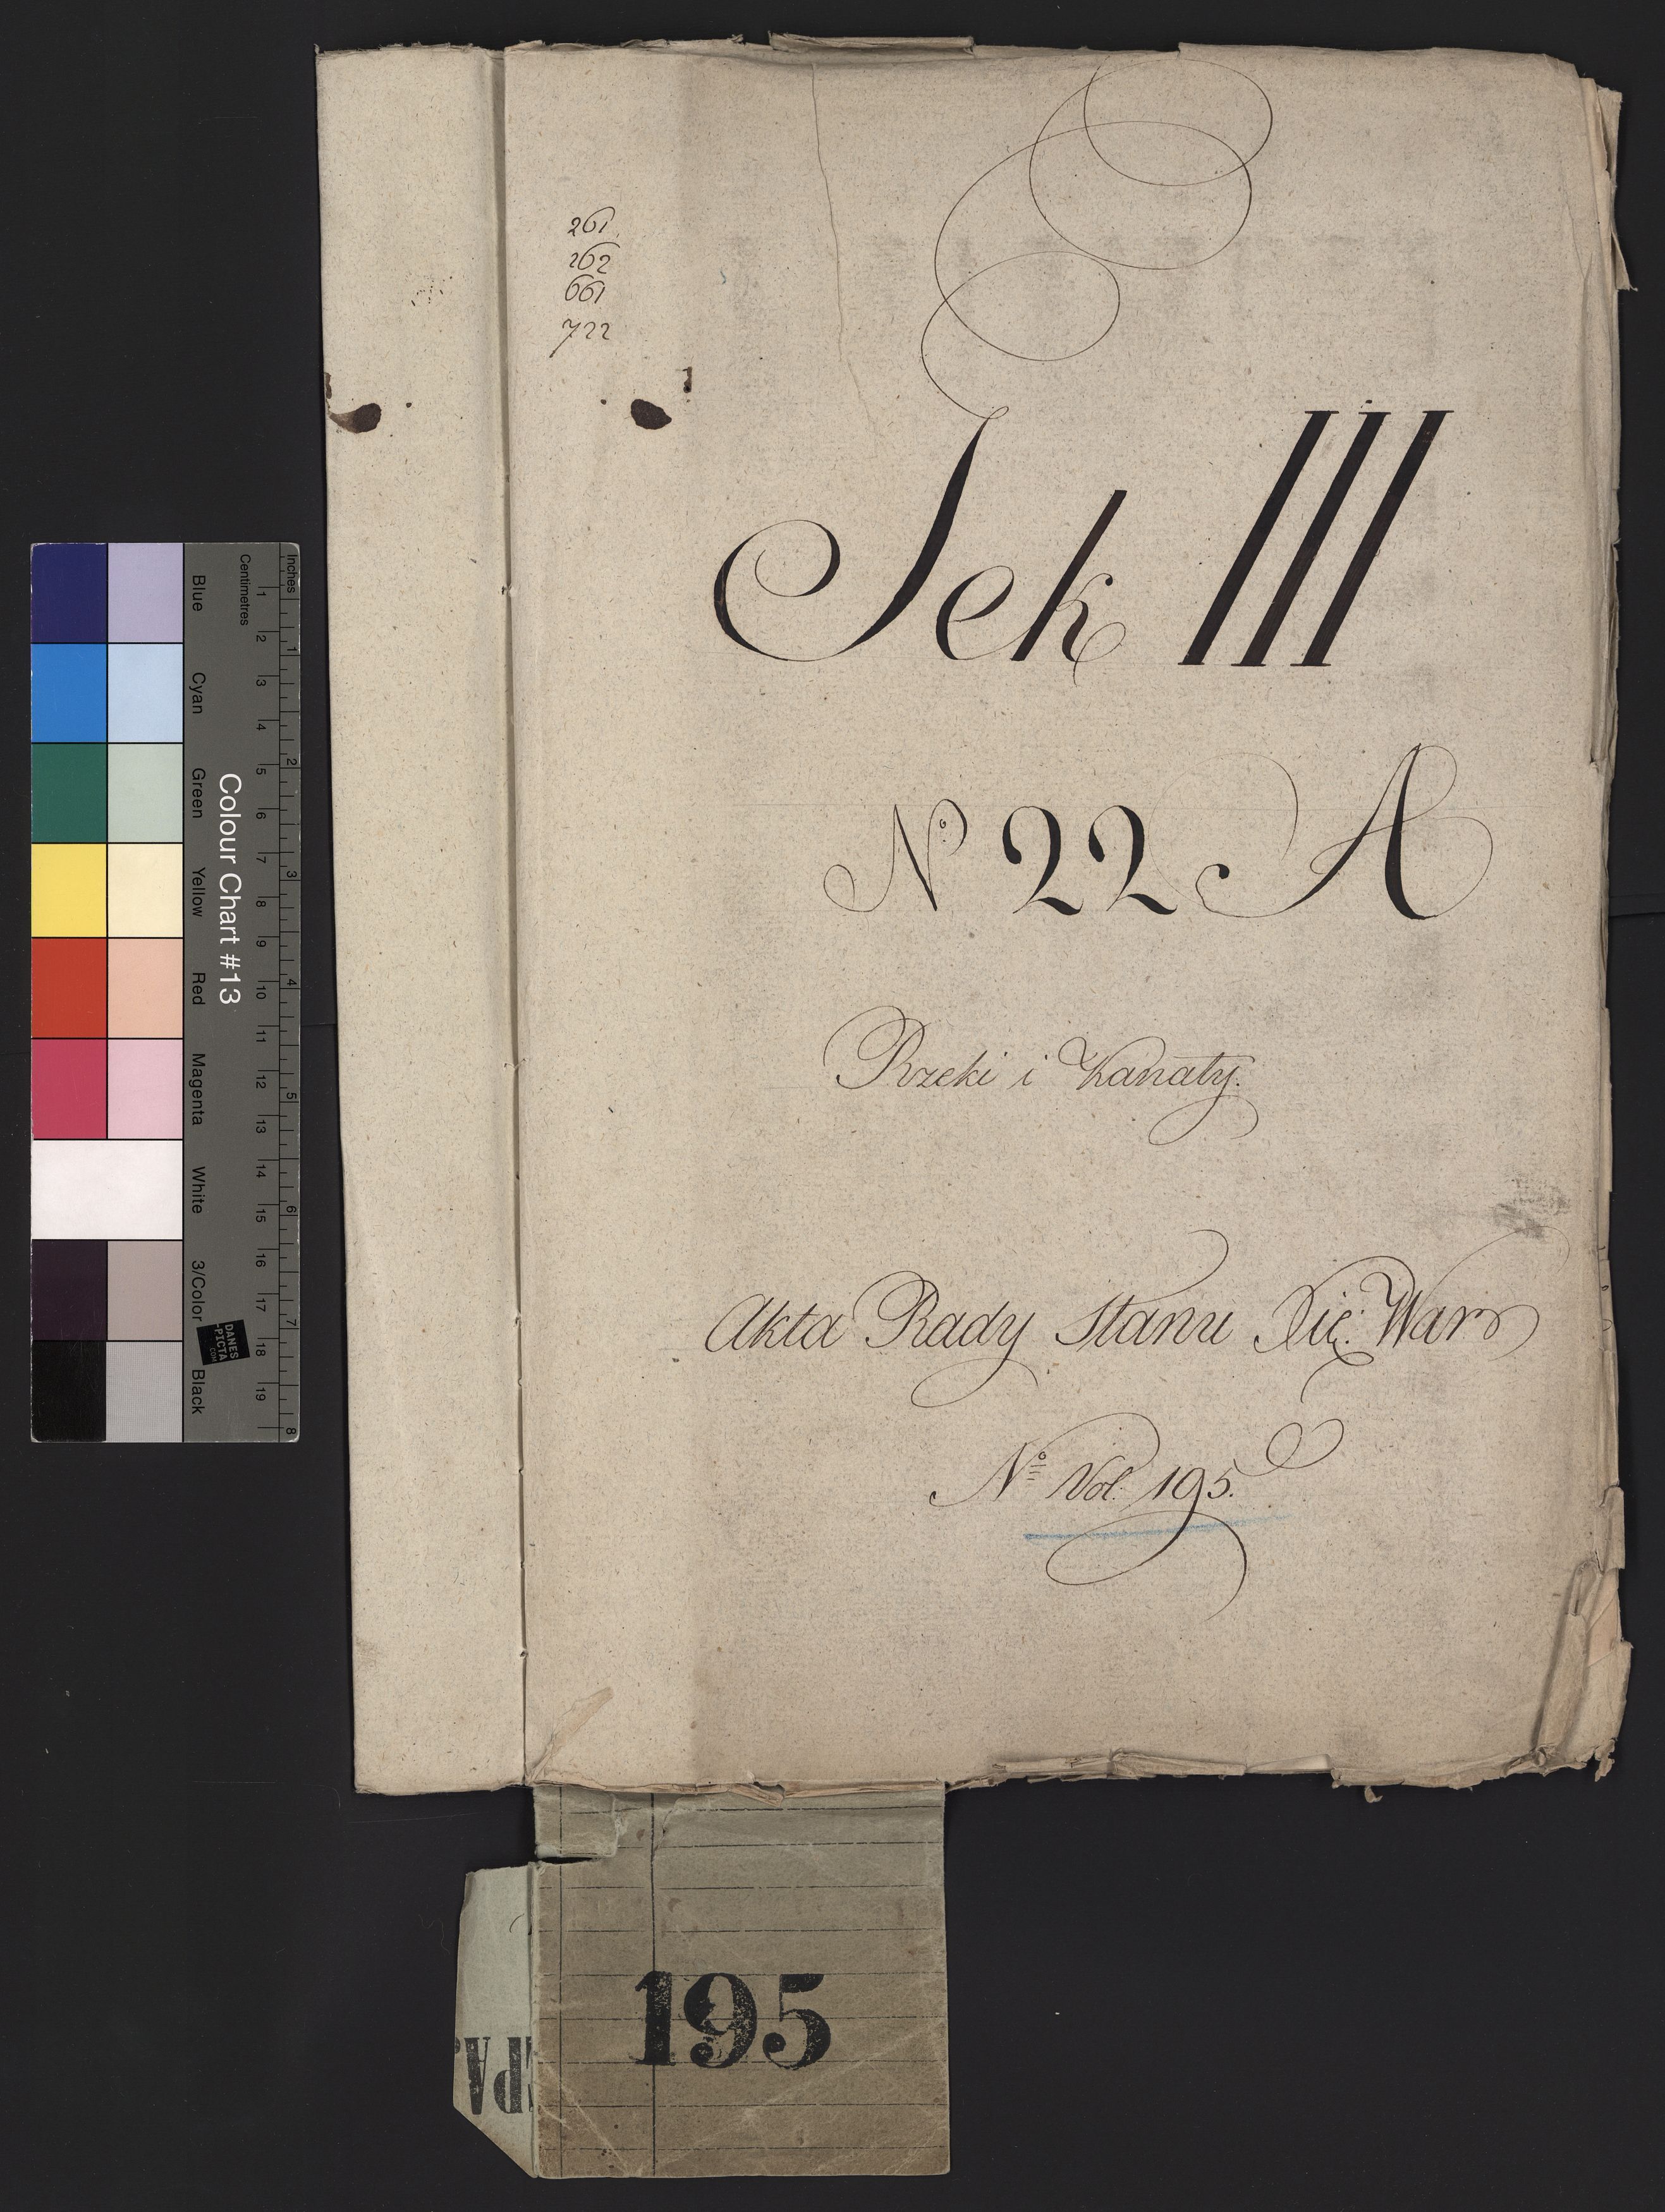 261
262
661
722
Sek III
No 22 A
Rzeki i Kanały.
Akta Rady Stanu Xię: Warº
No Vol: 195.
195
PA.
Colour Chart #13
Blue
Cyan
Green
Yellow
Red
Magenta
White
3/Color
Black
Centimetres
1 2 3 4 5 6 7 8 9 10 11 12 13 14 15 16 17 18 19
Inches
1 2 3 4 5 6 7 8
DANES
-PICTA
.COM